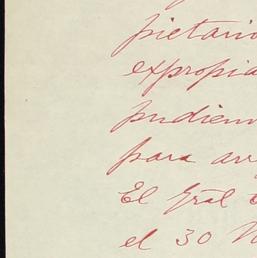 pietario
expropia
pudien
para arr
El Gral
el 30 N